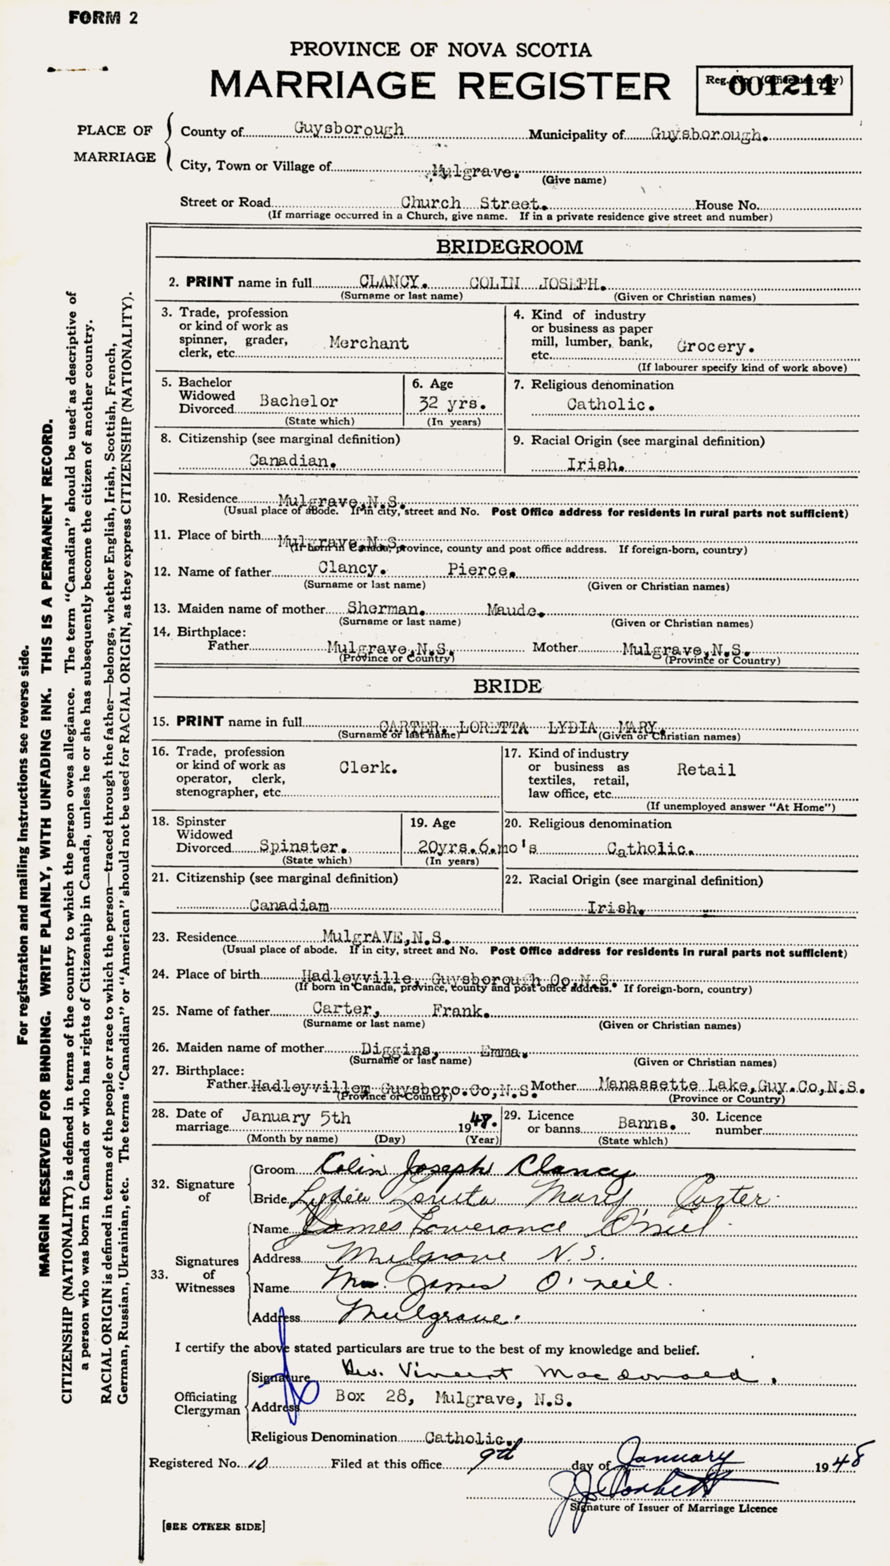 FORM 2
PROVINCE OF NOVA SCOTIA
MARRIAGE REGISTER
Reg. No. (Office use only)
001214
PLACE OF MARRIAGE
County of Guysborough Municipality of Guysborough.
City, Town or Village of Mulgrave.
(Give name)
Street or Road Church Street. House No.
(If marriage occurred in a Church, give name. If in a private residence give street and number)
BRIDEGROOM
2. PRINT name in full CLANCY. COLIN JOSEPH.
(Surname or last name) (Given or Christian names)
3. Trade, profession or kind of work as spinner, grader, clerk, etc. Merchant
4. Kind of industry or business as paper mill, lumber, bank, etc. Grocery.
(If labourer specify kind of work above)
5. Bachelor Widowed Divorced Bachelor
(State which)
6. Age 32 yrs.
(In years)
7. Religious denomination
Catholic.
8. Citizenship (see marginal definition)
Canadian.
9. Racial Origin (see marginal definition)
Irish.
10. Residence Mulgrave,N.S.
(Usual place of abode. If in city, street and No. Post Office address for residents in rural parts not sufficient)
11. Place of birth Mulgrave,N.S.
(If born in Canada, province, county and post office address. If foreign-born, country)
12. Name of father Clancy. Pierce.
(Surname or last name) (Given or Christian names)
13. Maiden name of mother Sherman. Maude.
(Surname or last name) (Given or Christian names)
14. Birthplace:
Father Mulgrave,N.S. Mother Mulgrave,N.S.
(Province or Country) (Province or Country)
BRIDE
15. PRINT name in full CARTER. LORETTA LYDIA MARY.
(Surname or last name) (Given or Christian names)
16. Trade, profession or kind of work as operator, clerk, stenographer, etc. Clerk.
17. Kind of industry or business as textiles, retail, law office, etc. Retail
(If unemployed answer "At Home")
18. Spinster Widowed Divorced Spinster.
(State which)
19. Age 20yrs.6.mo's
(In years)
20. Religious denomination
Catholic.
21. Citizenship (see marginal definition)
Canadiam
22. Racial Origin (see marginal definition)
Irish.
23. Residence MulgrAVE,N.S.
(Usual place of abode. If in city, street and No. Post Office address for residents in rural parts not sufficient)
24. Place of birth Hadleyville, Guysborough Co,N.S.
(If born in Canada, province, county and post office address. If foreign-born, country)
25. Name of father Carter, Frank.
(Surname or last name) (Given or Christian names)
26. Maiden name of mother Diggins, Emma.
(Surname or last name) (Given or Christian names)
27. Birthplace:
Father Hadleyvillem Guysboro.Co,N.S. Mother Manassette Lake,Guy.Co,N.S.
(Province or Country) (Province or Country)
28. Date of marriage January 5th 1948.
(Month by name) (Day) (Year)
29. Licence or banns Banns.
(State which)
30. Licence number
32. Signature of
Groom Colin Joseph Clancy
Bride Lydia Loretta Mary Carter
33. Signatures of Witnesses
Name James Lowerance O'neil
Address Mulgrave N.S.
Name Mrs. James O'neil.
Address Mulgrave.
I certify the above stated particulars are true to the best of my knowledge and belief.
Officiating Clergyman
Signature Rev. Vincent MacDonald.
Address Box 28, Mulgrave, N.S.
Religious Denomination Catholic.
Registered No. 10 Filed at this office 9th day of January 1948
J J Corbett
Signature of Issuer of Marriage Licence
[SEE OTHER SIDE]
For registration and mailing instructions see reverse side.
MARGIN RESERVED FOR BINDING. WRITE PLAINLY, WITH UNFADING INK. THIS IS A PERMANENT RECORD.
CITIZENSHIP (NATIONALITY) is defined in terms of the country to which the person owes allegiance. The term "Canadian" should be used as descriptive of
a person who was born in Canada or who has rights of Citizenship in Canada, unless he or she has subsequently become the citizen of another country.
RACIAL ORIGIN is defined in terms of the people or race to which the person—traced through the father—belongs, whether English, Irish, Scottish, French,
German, Russian, Ukrainian, etc. The terms "Canadian" or "American" should not be used for RACIAL ORIGIN, as they express CITIZENSHIP (NATIONALITY).